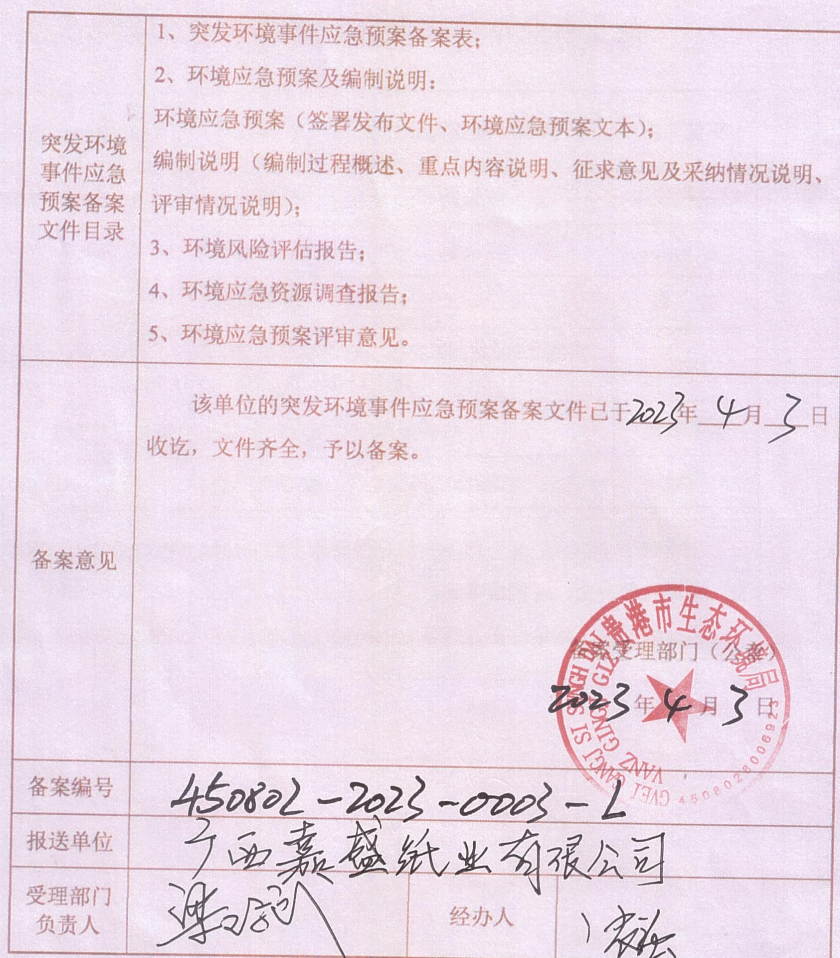 突发环境
事件应急
预案备案
文件目录
1、突发环境事件应急预案备案表；
2、环境应急预案及编制说明：
环境应急预案（签署发布文件、环境应急预案文本）；
编制说明（编制过程概述、重点内容说明、征求意见及采纳情况说明、
评审情况说明）；
3、环境风险评估报告；
4、环境应急资源调查报告；
5、环境应急预案评审意见。
备案意见
该单位的突发环境事件应急预案备案文件已于2023年 4月 3日
收讫，文件齐全，予以备案。
贵港市生态环境局
备案受理部门（公章）
2023年4月3日
4508028006923
备案编号
450802-2023-0003-L
报送单位
广西嘉盛纸业有限公司
受理部门
负责人
经办人